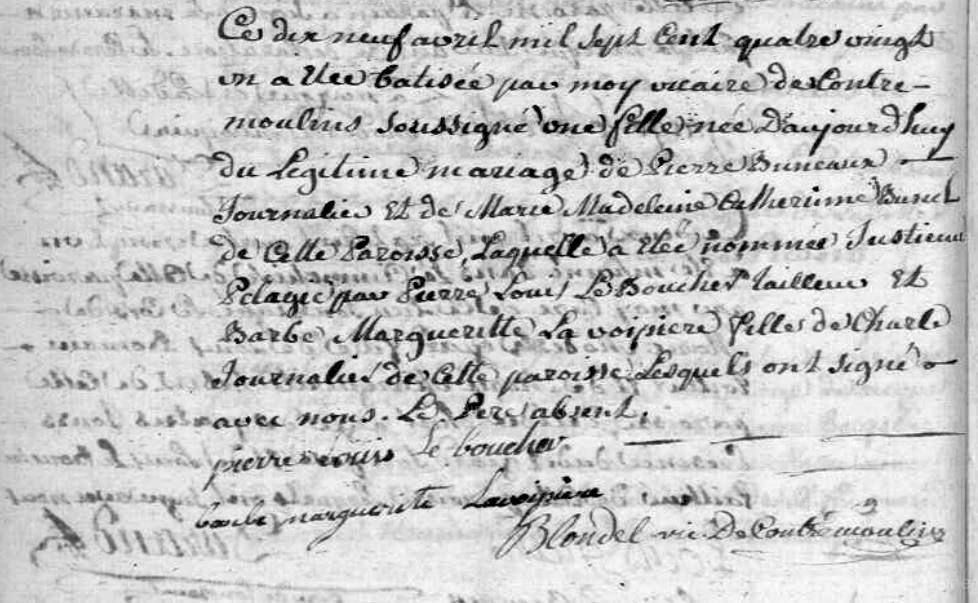 Ce dix neuf avril mil sept Cent quatre vingt
un a étée batisée par moy vicaire de Contre-
moulins soussigné une fille née D'aujourd'huy
du Legitime mariage de Pierre Buneaux
Journalier Et de Marie Madeleine Catherinne Brunel
de Cette Paroisse, Laquelle a étée nommée Justienne
Pelagie par Pierre Louis Le Boucher tailleur Et
Barbe Margueritte La voipiere filles de Charle
Journalier de Cette paroisse Lesquels ont signé
avec nous. Le Pere absent.
pierre Louis Le boucher
barbe marguerite Lavoipiere
Blondel vic. De Contremoulins